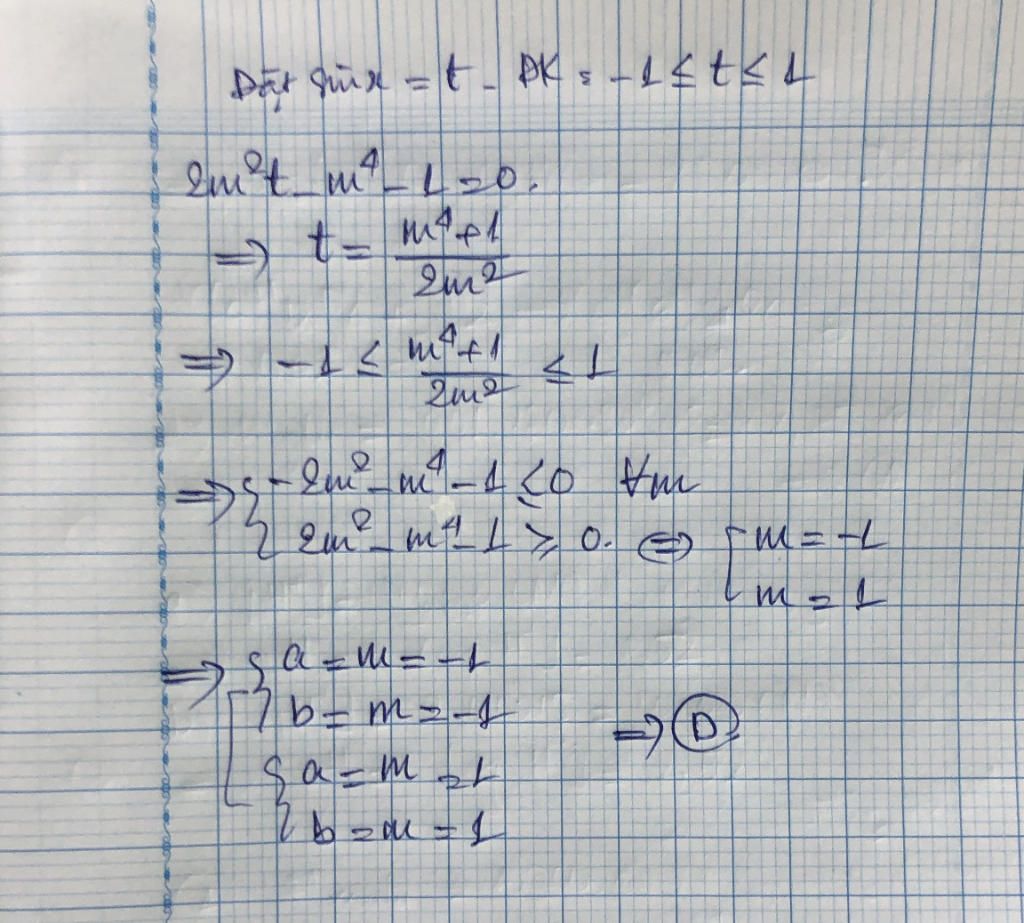 Đặt sin x = t - ĐK : -1 ≤ t ≤ 1
2m²t - m⁴ - 1 = 0.
⇒ t = (m⁴+1)/(2m²)
⇒ -1 ≤ (m⁴+1)/(2m²) ≤ 1
⇒ { -2m² - m⁴ - 1 ≤ 0 ∀m
2m² - m⁴ - 1 ≥ 0. ⇔ [ m = -1
m = 1
⇒ [ { a = m = -1
b = m = -1 ⇒ D
{ a = m = 1
b = m = 1